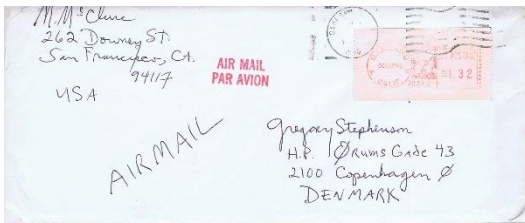 M. McClure
262 Downey St.
San Francisco, CA.
94117
USA
AIR MAIL
PAR AVION
1.32
AIRMAIL
Gregory Stephenson
H.P. Ørums Gade 43
2100 Copenhagen Ø
DENMARK